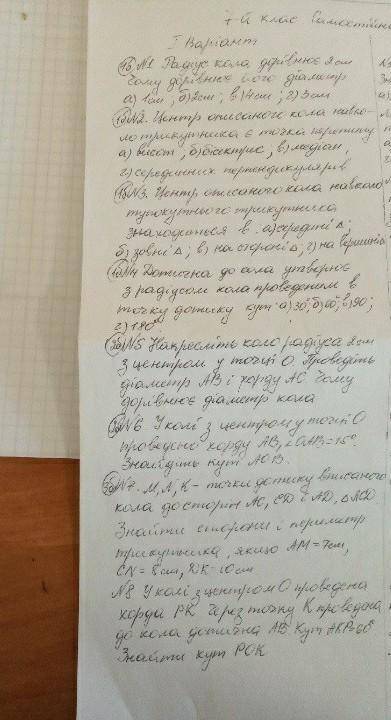 7-й клас Самостійна
I Варіант
1б №1 Радіус кола дорівнює 2см
Чому дорівнює його діаметр
а) 1см; б) 2см; в) 4см; г) 3см
1б №2. Центр описаного кола навко-
ло трикутника є точка перетину
а) висот; б) бісектрис; в) медіан;
г) серединних перпендикулярів
1б №3. Центр описаного кола навколо
тупокутнього трикутника
знаходиться в: а) середині Δ;
б) зовні Δ; в) на стороні Δ; г) на вершині
№4 Дотична до кола утворює
з радіусом кола проведеним в
точку дотику кут: а) 30°; б) 60°; в) 90°;
г) 180°
№5 Накресліть коло радіуса 2см
з центром у точці О. Проведіть
діаметр АВ і хорду АС. Чому
дорівнює діаметр кола
№6 У колі з центром у точці О
проведено хорду АВ, ∠ОАВ=15°.
Знайдіть кут АОВ.
№7. M, N, K – точки дотику вписаного
кола до сторін АС, CD і AD, ΔACD
Знайти сторони і периметр
трикутника, якщо АМ = 7см,
CN = 8см, DK = 10см
№8 У колі з центром О проведена
хорда РК. Через точку К проведена
до кола дотична АВ. Кут АКР=60°
Знайти кут РОК